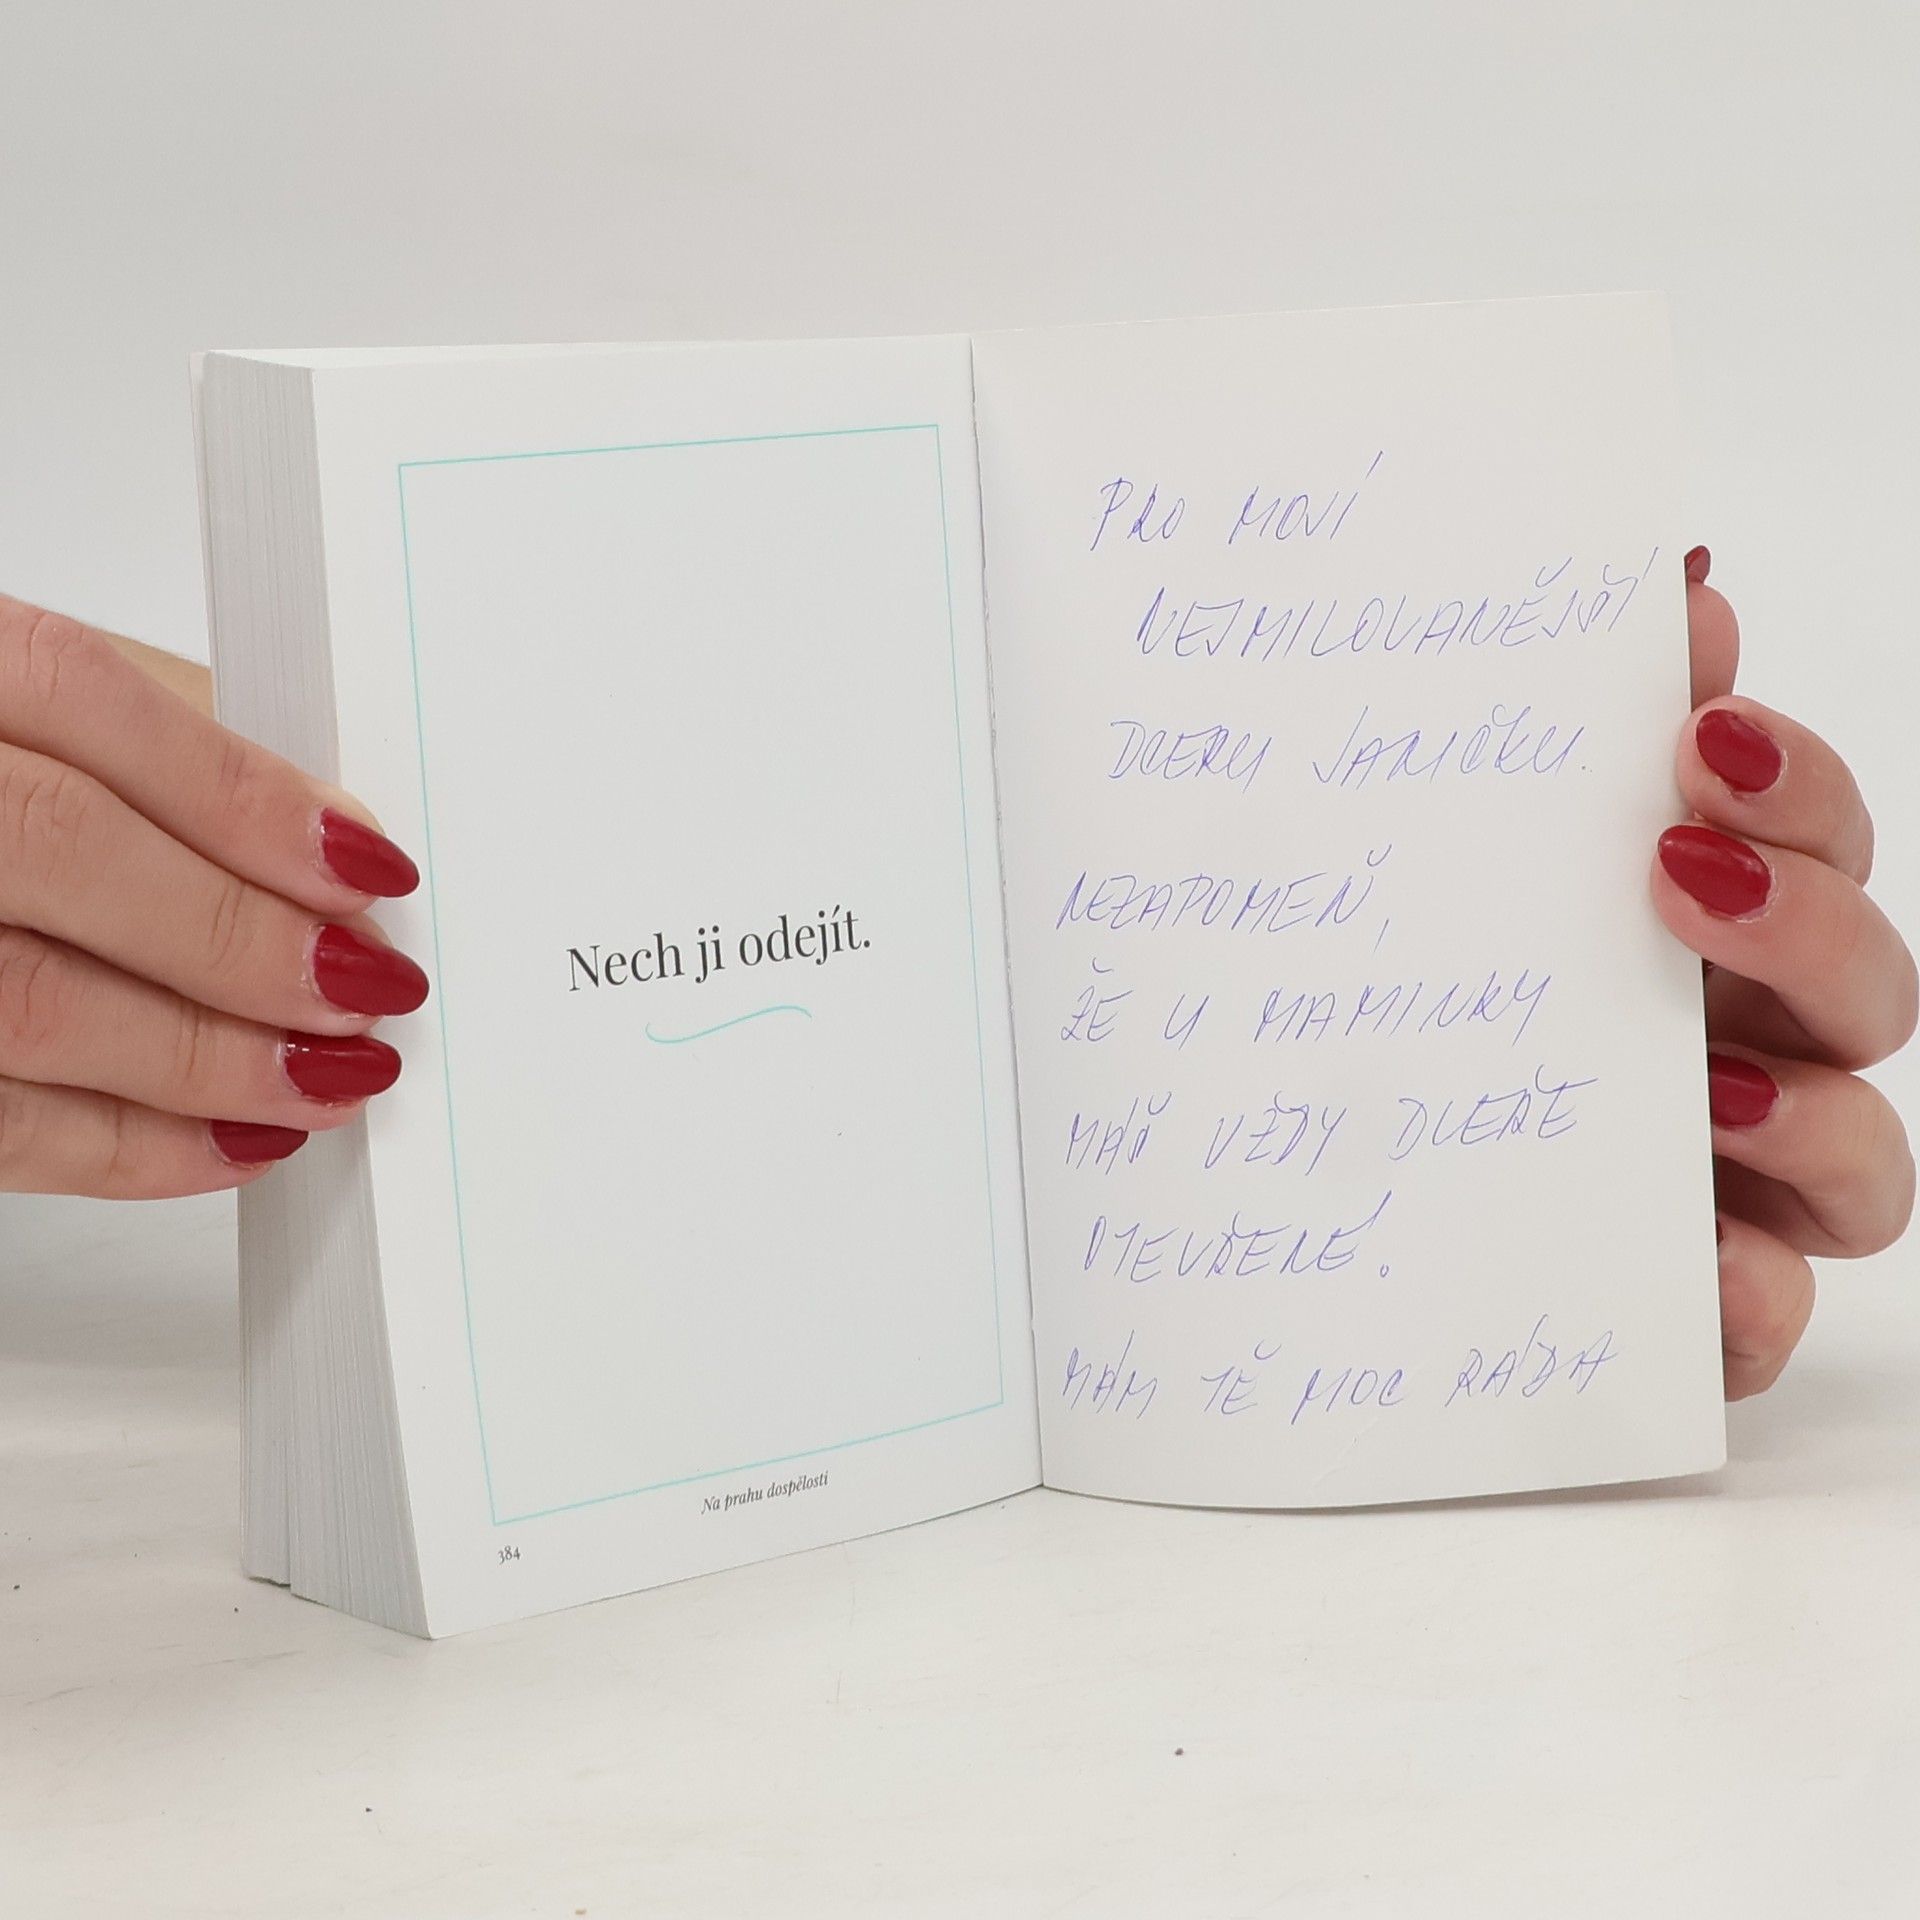 Nech ji odejít.
Na prahu dospělosti
384
PRO MOJÍ
NEJMILOVANĚJŠÍ
DCERU JANIČKU.
NEZAPOMEŇ,
ŽE U MAMINKY
MÁŠ VŽDY DVEŘE
OTEVŘENÉ!
MÁM TĚ MOC RÁDA